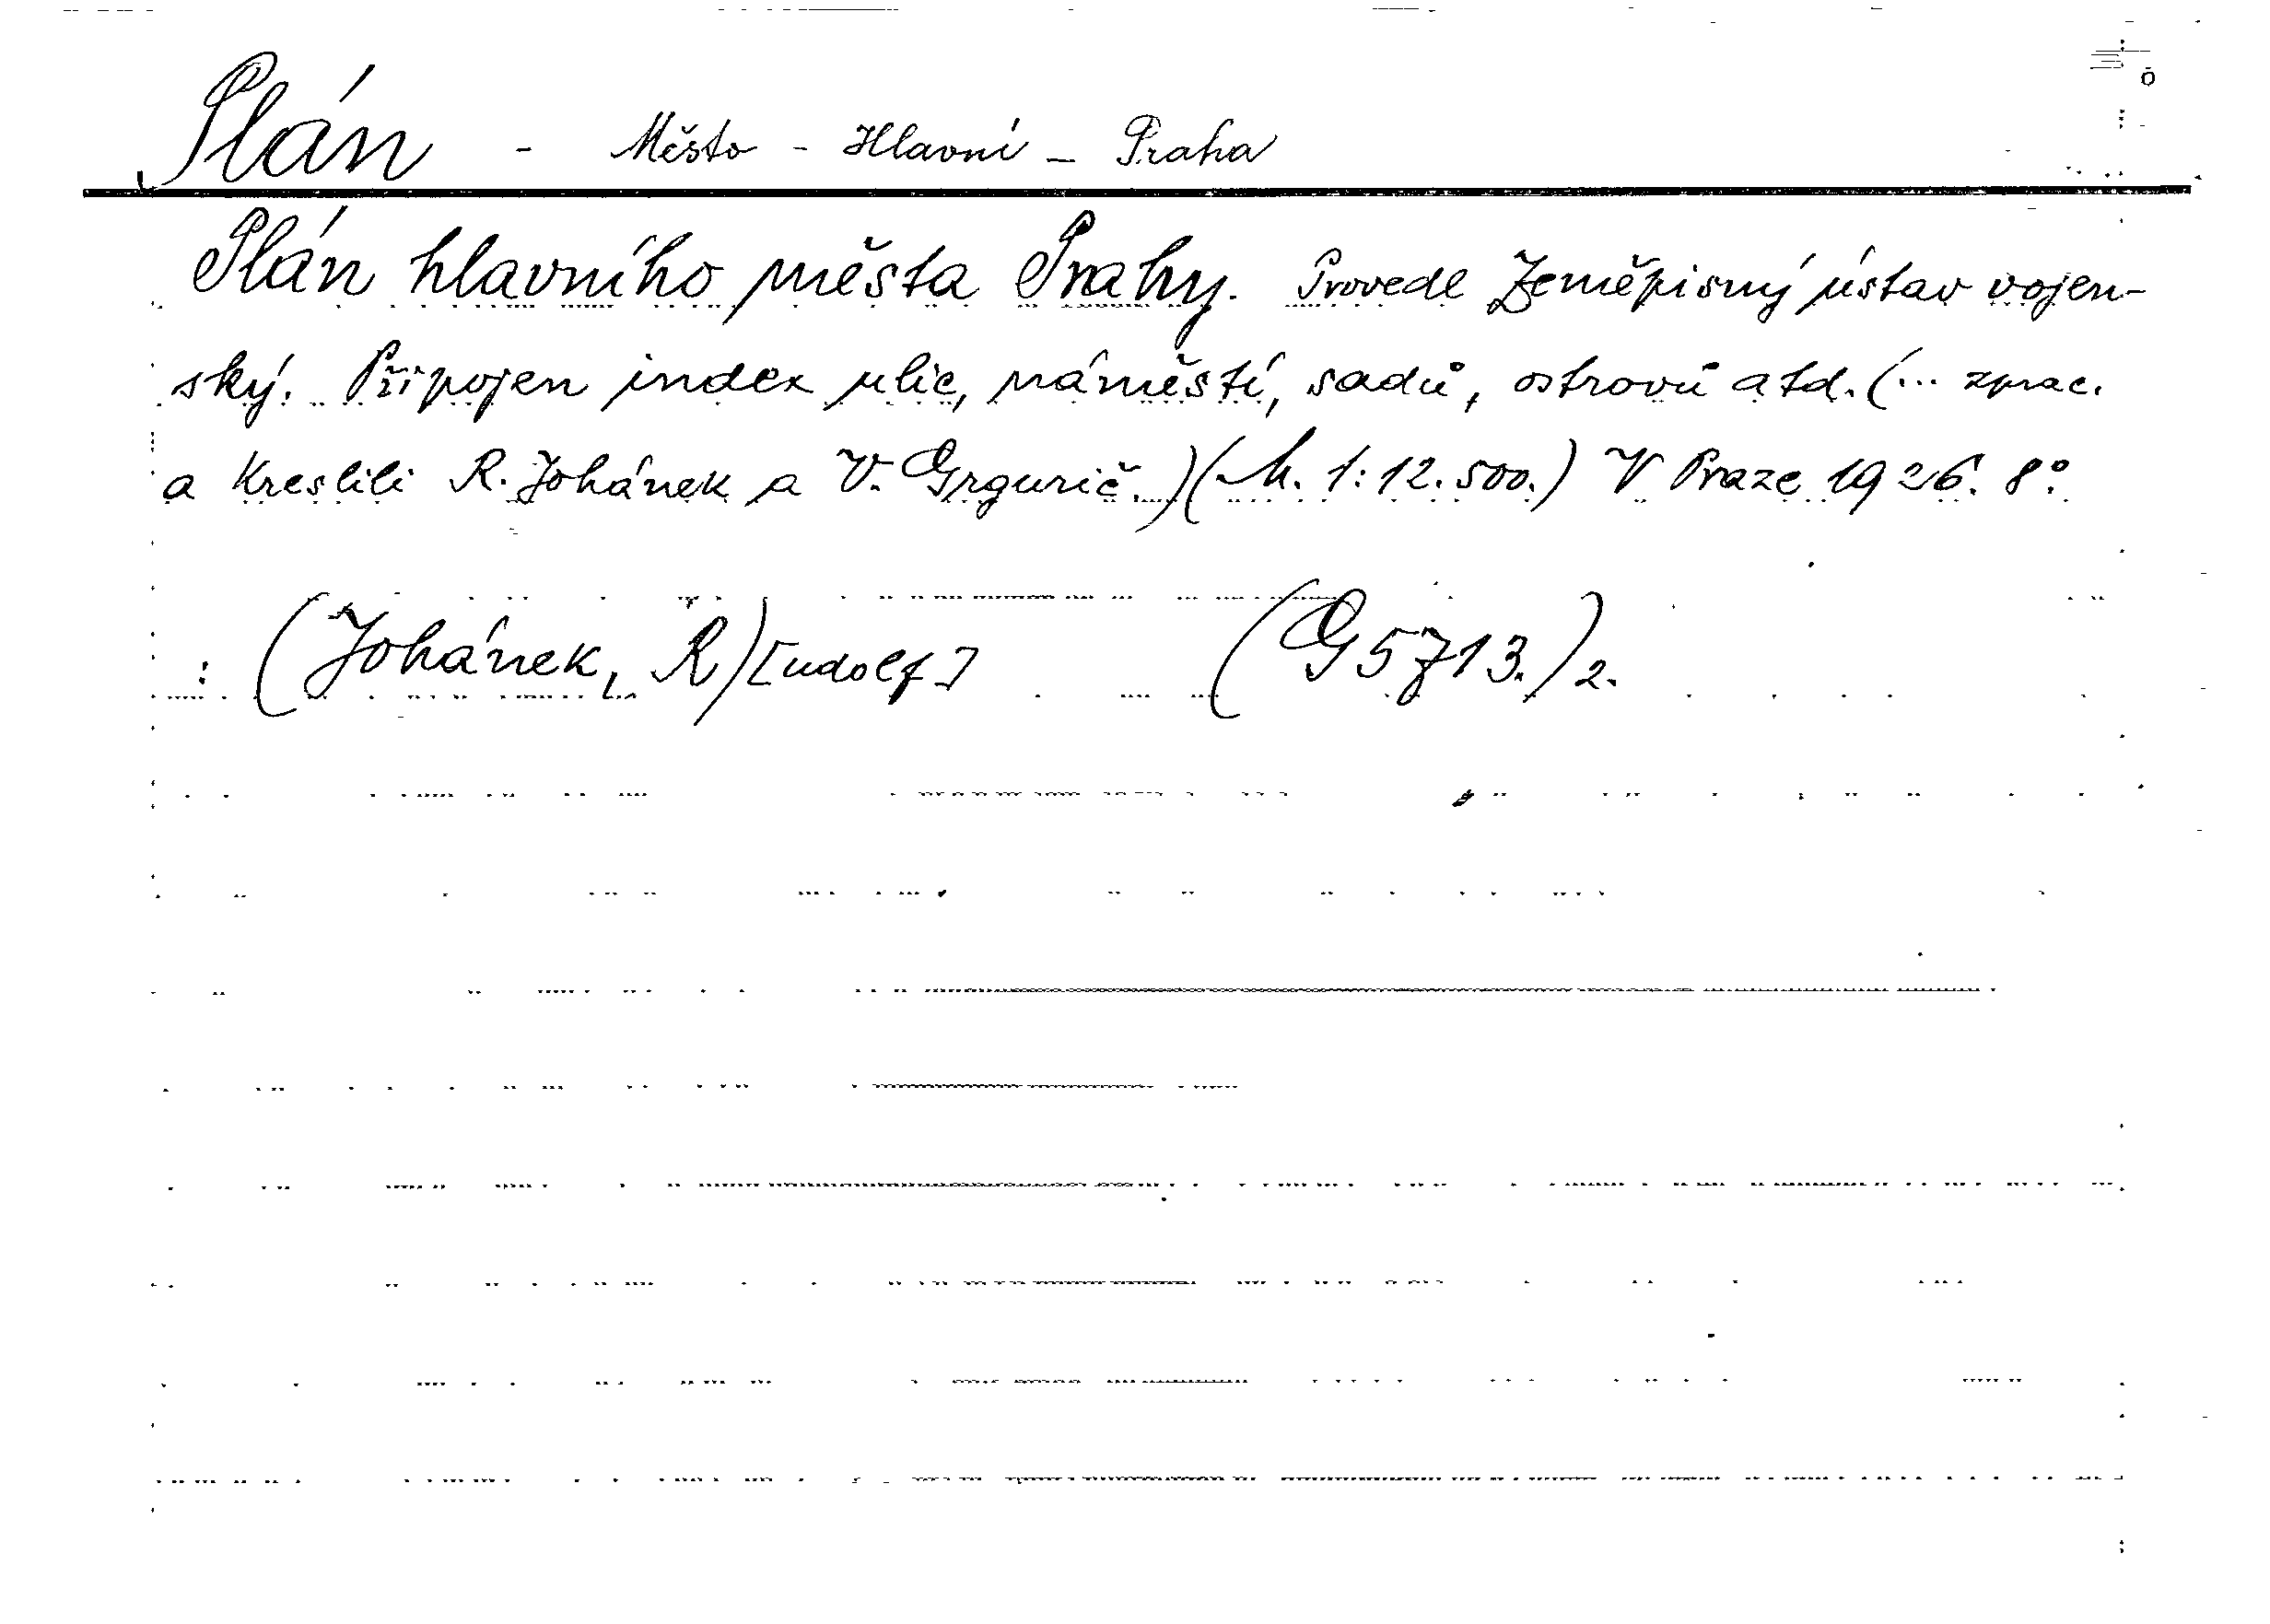 Plán - Město - Hlavní - Praha
Plán hlavního města Prahy. Provedl Zeměpisný ústav vojen-
ský. Připojen index ulic, náměstí, sadů, ostrovů atd. (... zprac.
a kreslili R. Johánek a V. Grgurič.) (M. 1:12.500.) V Praze 1926. 8°.
: (Johánek, R)[udolf] (G 5713.) 2.